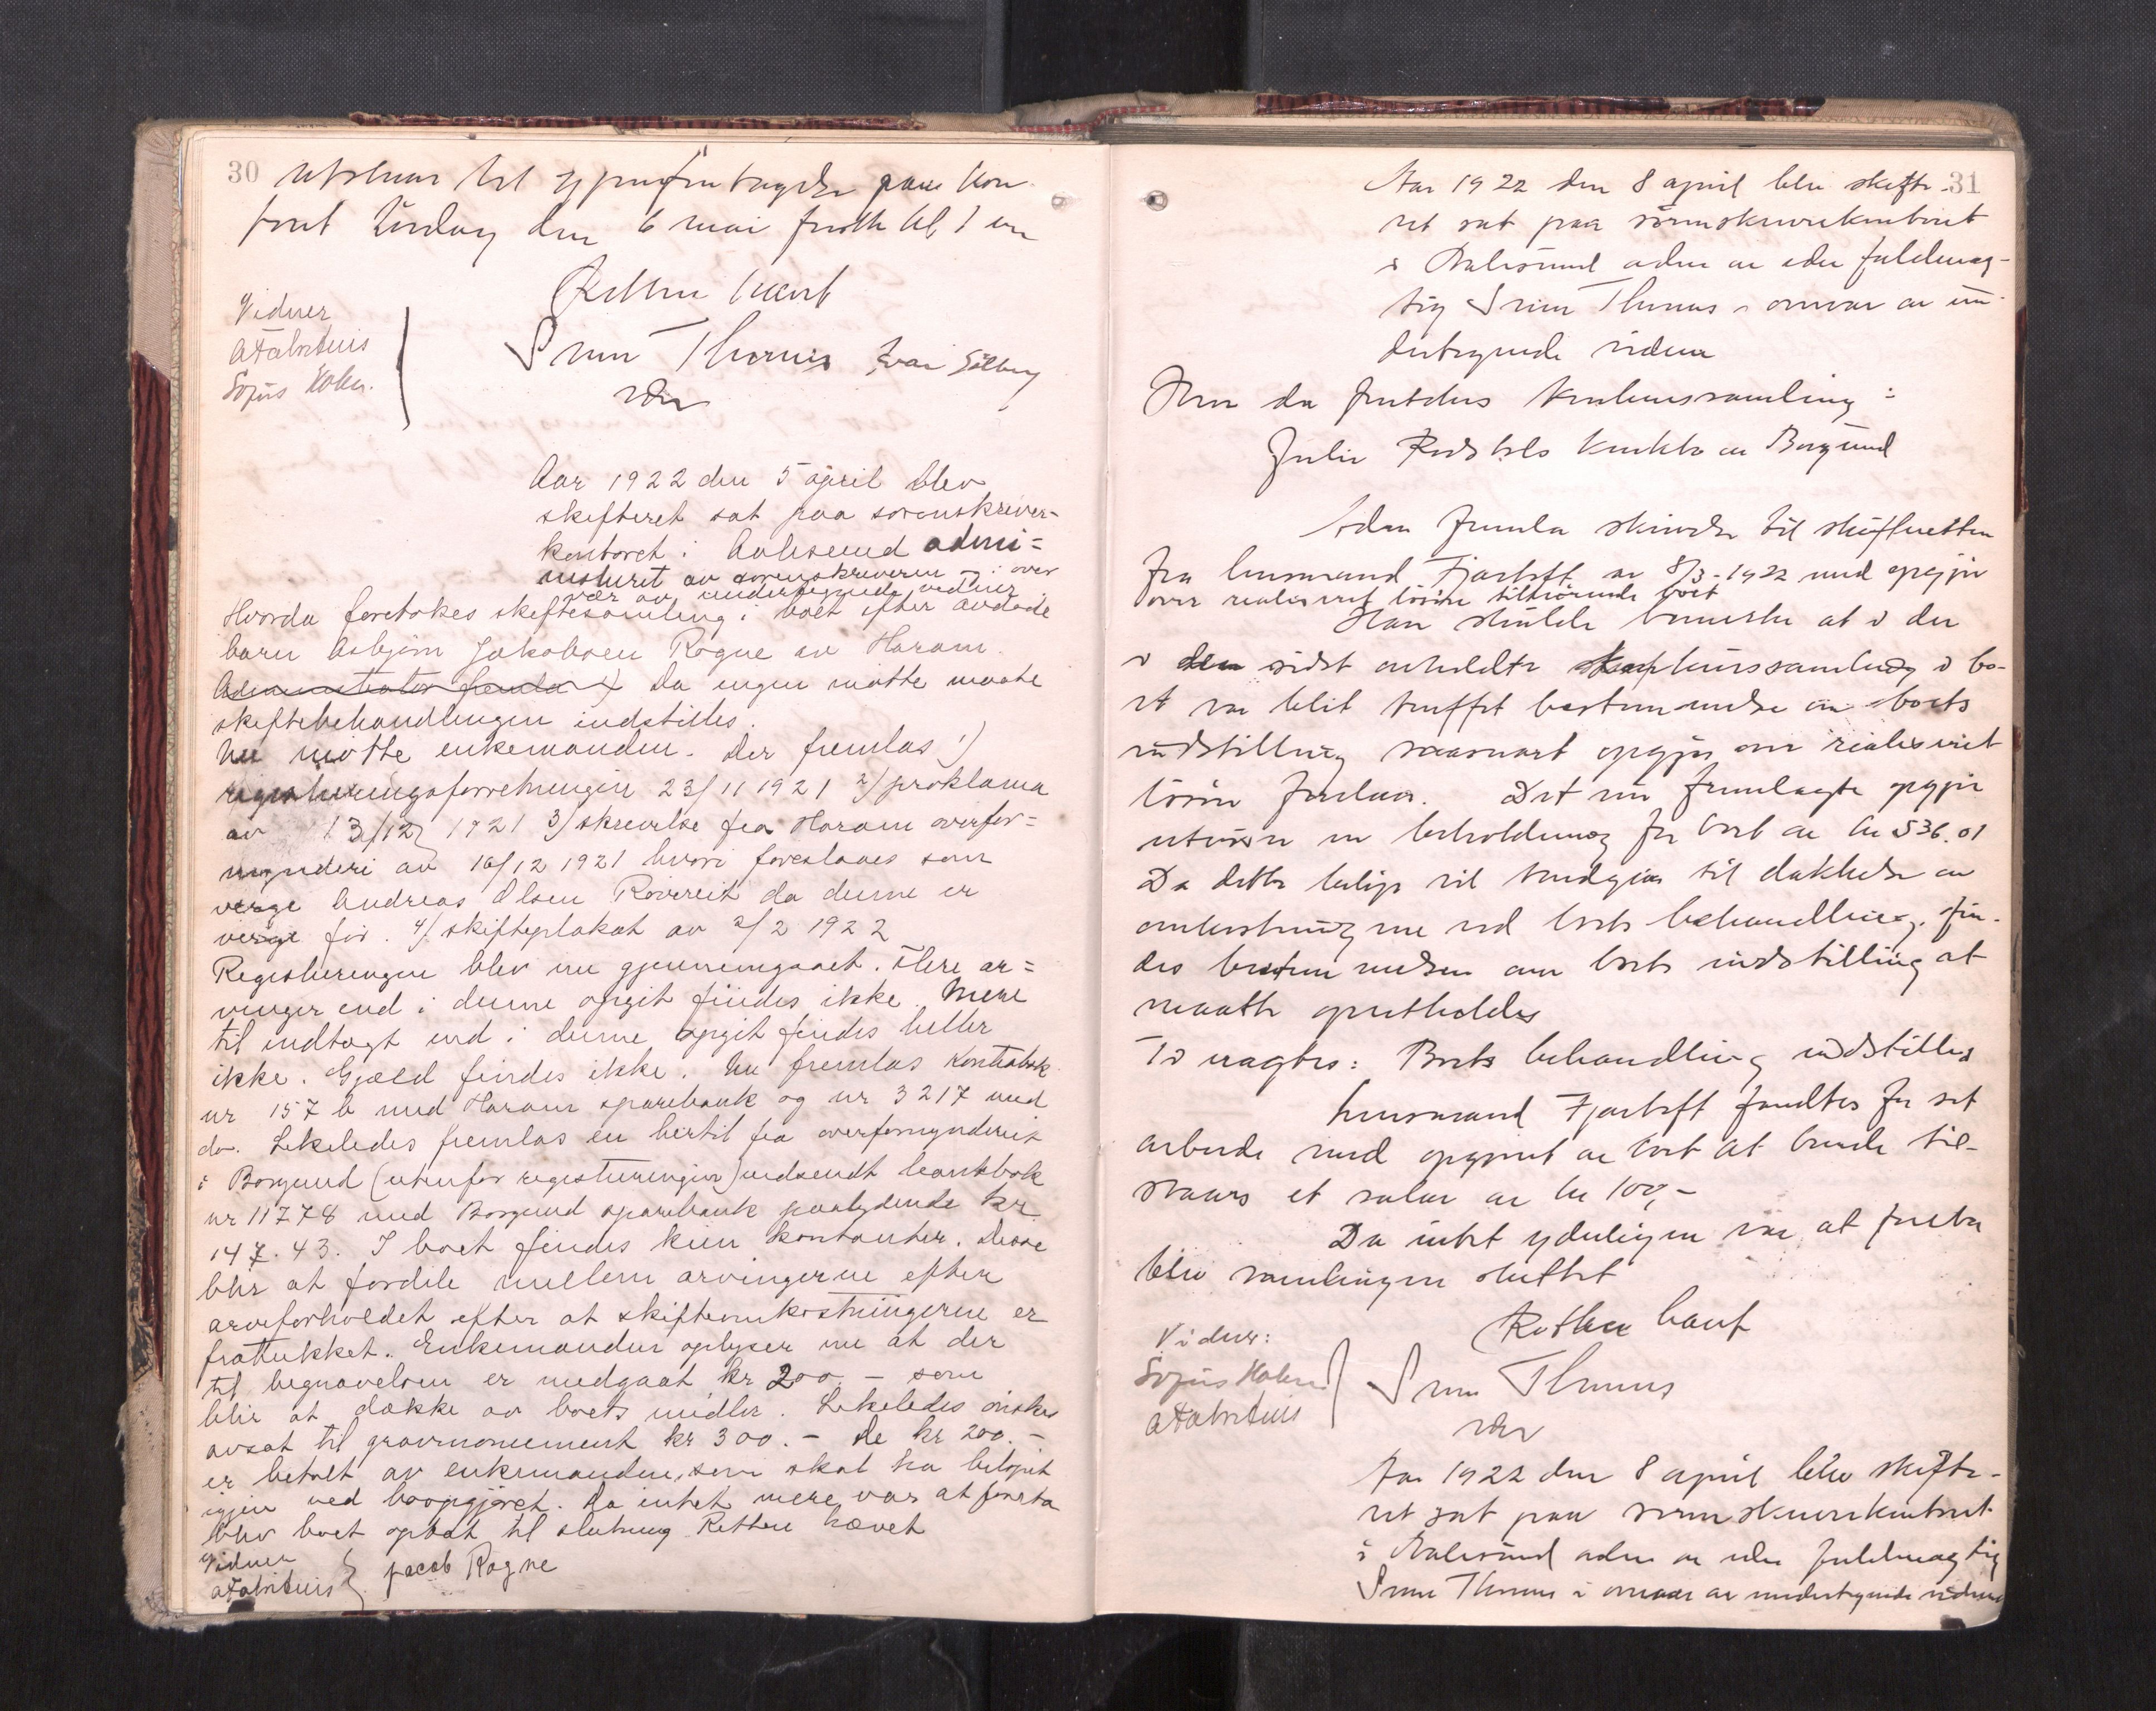 30
til
foret lördag den 6 mai kl 1 em
Retten hævet
Vidner
Sofus Holm.
Sven Thomas Ivar Solberg
Aar 1922 den 5 april blev
skifteret sat paa sorenskriver-
kontoret i Aalesund admi=
nistreret av sorenskriveren i over
vær av undertegnede vidner
Hvorda foretokes skiftesamling i boet efter avdøde
barn Asbjørn Jakobsen Rogne av Haram.
Administrator fremla 1) Da ingen møtte maate
skiftebehandlingen indstilles.
Nu møtte enkemanden. Der fremlas 1)
registreringsforretningen 23/11 1921 2) proklama
av 13/12 1921 3) skrivelse fra Haram overfor=
mynderi av 16/12 1921 hvori foreslaaes som
verge Andreas Olsen da denne er
verge før. 4) skifteplakat av 2/2 1922
Registreringen blev nu gjennemgaaet. Flere ar=
vinger end i denne opgit findes ikke. Mere
til indtægt end i denne opgit findes heller
ikke. Gjæld findes ikke. Nu fremlas Kontrabok
nr 157 b med Haram sparebank og nr 3217 med
do. Likeledes fremlas en hertil fra overformynderiet
i Borgund (utenfor registreringen) indsendt bankbok
nr 11778 med Borgund sparebank paalydende kr
147.43. I boet findes kun kontanter. Disse
blir at fordele mellem arvingerne efter
arveforholdet efter at skifteomkostningerne er
frattrukket. Enkemanden oplyser nu at der
til begravelsen er medgaat kr 200.- som
blir at dække av boets midler. Likeledes ønskes
avsat til gravmonument kr 300.- De kr 200.-
er betalt av enkemanden, som skal ha beløpet
igjen ved boopgjøret. Da intet mere var at foreta
blev boet optat til slutning Retten hævet
Vidner
Jacob Rogne
31
Aar 1922 den 8 april blev skifte-
ret sat paa sorenskriverkontoret
i Aalesund adm av edsv fuldmæg-
tig Sven Thomas i overvær av un-
dertegnede vidner
Hvor da foretokes konkurssamling i
Julie konkursbo av Borgund
Adm fremla skrivelse til skifteretten
fra lensmand Fjørtoft av 8/3-1922 med opgjør
over realiseret løsøre tilhørende boet
Han skulde bemerke at i den
i den sidst avholdte konkurssamling i bo-
et var blit truffet bestemmelse om boets
indstilling saasnart opgjør over realiseret
løsøre forelaa. Det nu fremlagte opgjør
utviser en beholdning for boet av kr 536.01
Da dette beløp vil medgaa til dækkelse av
omkostningerne ved boets behandling, fin-
des bestemmelsen om boets indstilling at
maatte opretholdes
Ti eragtes: Boets behandling indstilles
Lensmand Fjørtoft fandtes for sit
arbeide med opgjøret av boet at burde til-
staaes et salær av kr 100,-
Da intet yderligere var at foreta
blev samlingen sluttet
Retten hævet
Vidner:
Sofus Holm
Sven Thomas
Aar 1922 den 8 april blev skifte-
ret sat paa sorenskriverkontoret
i Aalesund adm av edsv fuldmægtig
Sven Thomas i overvær av undertegnede vidner